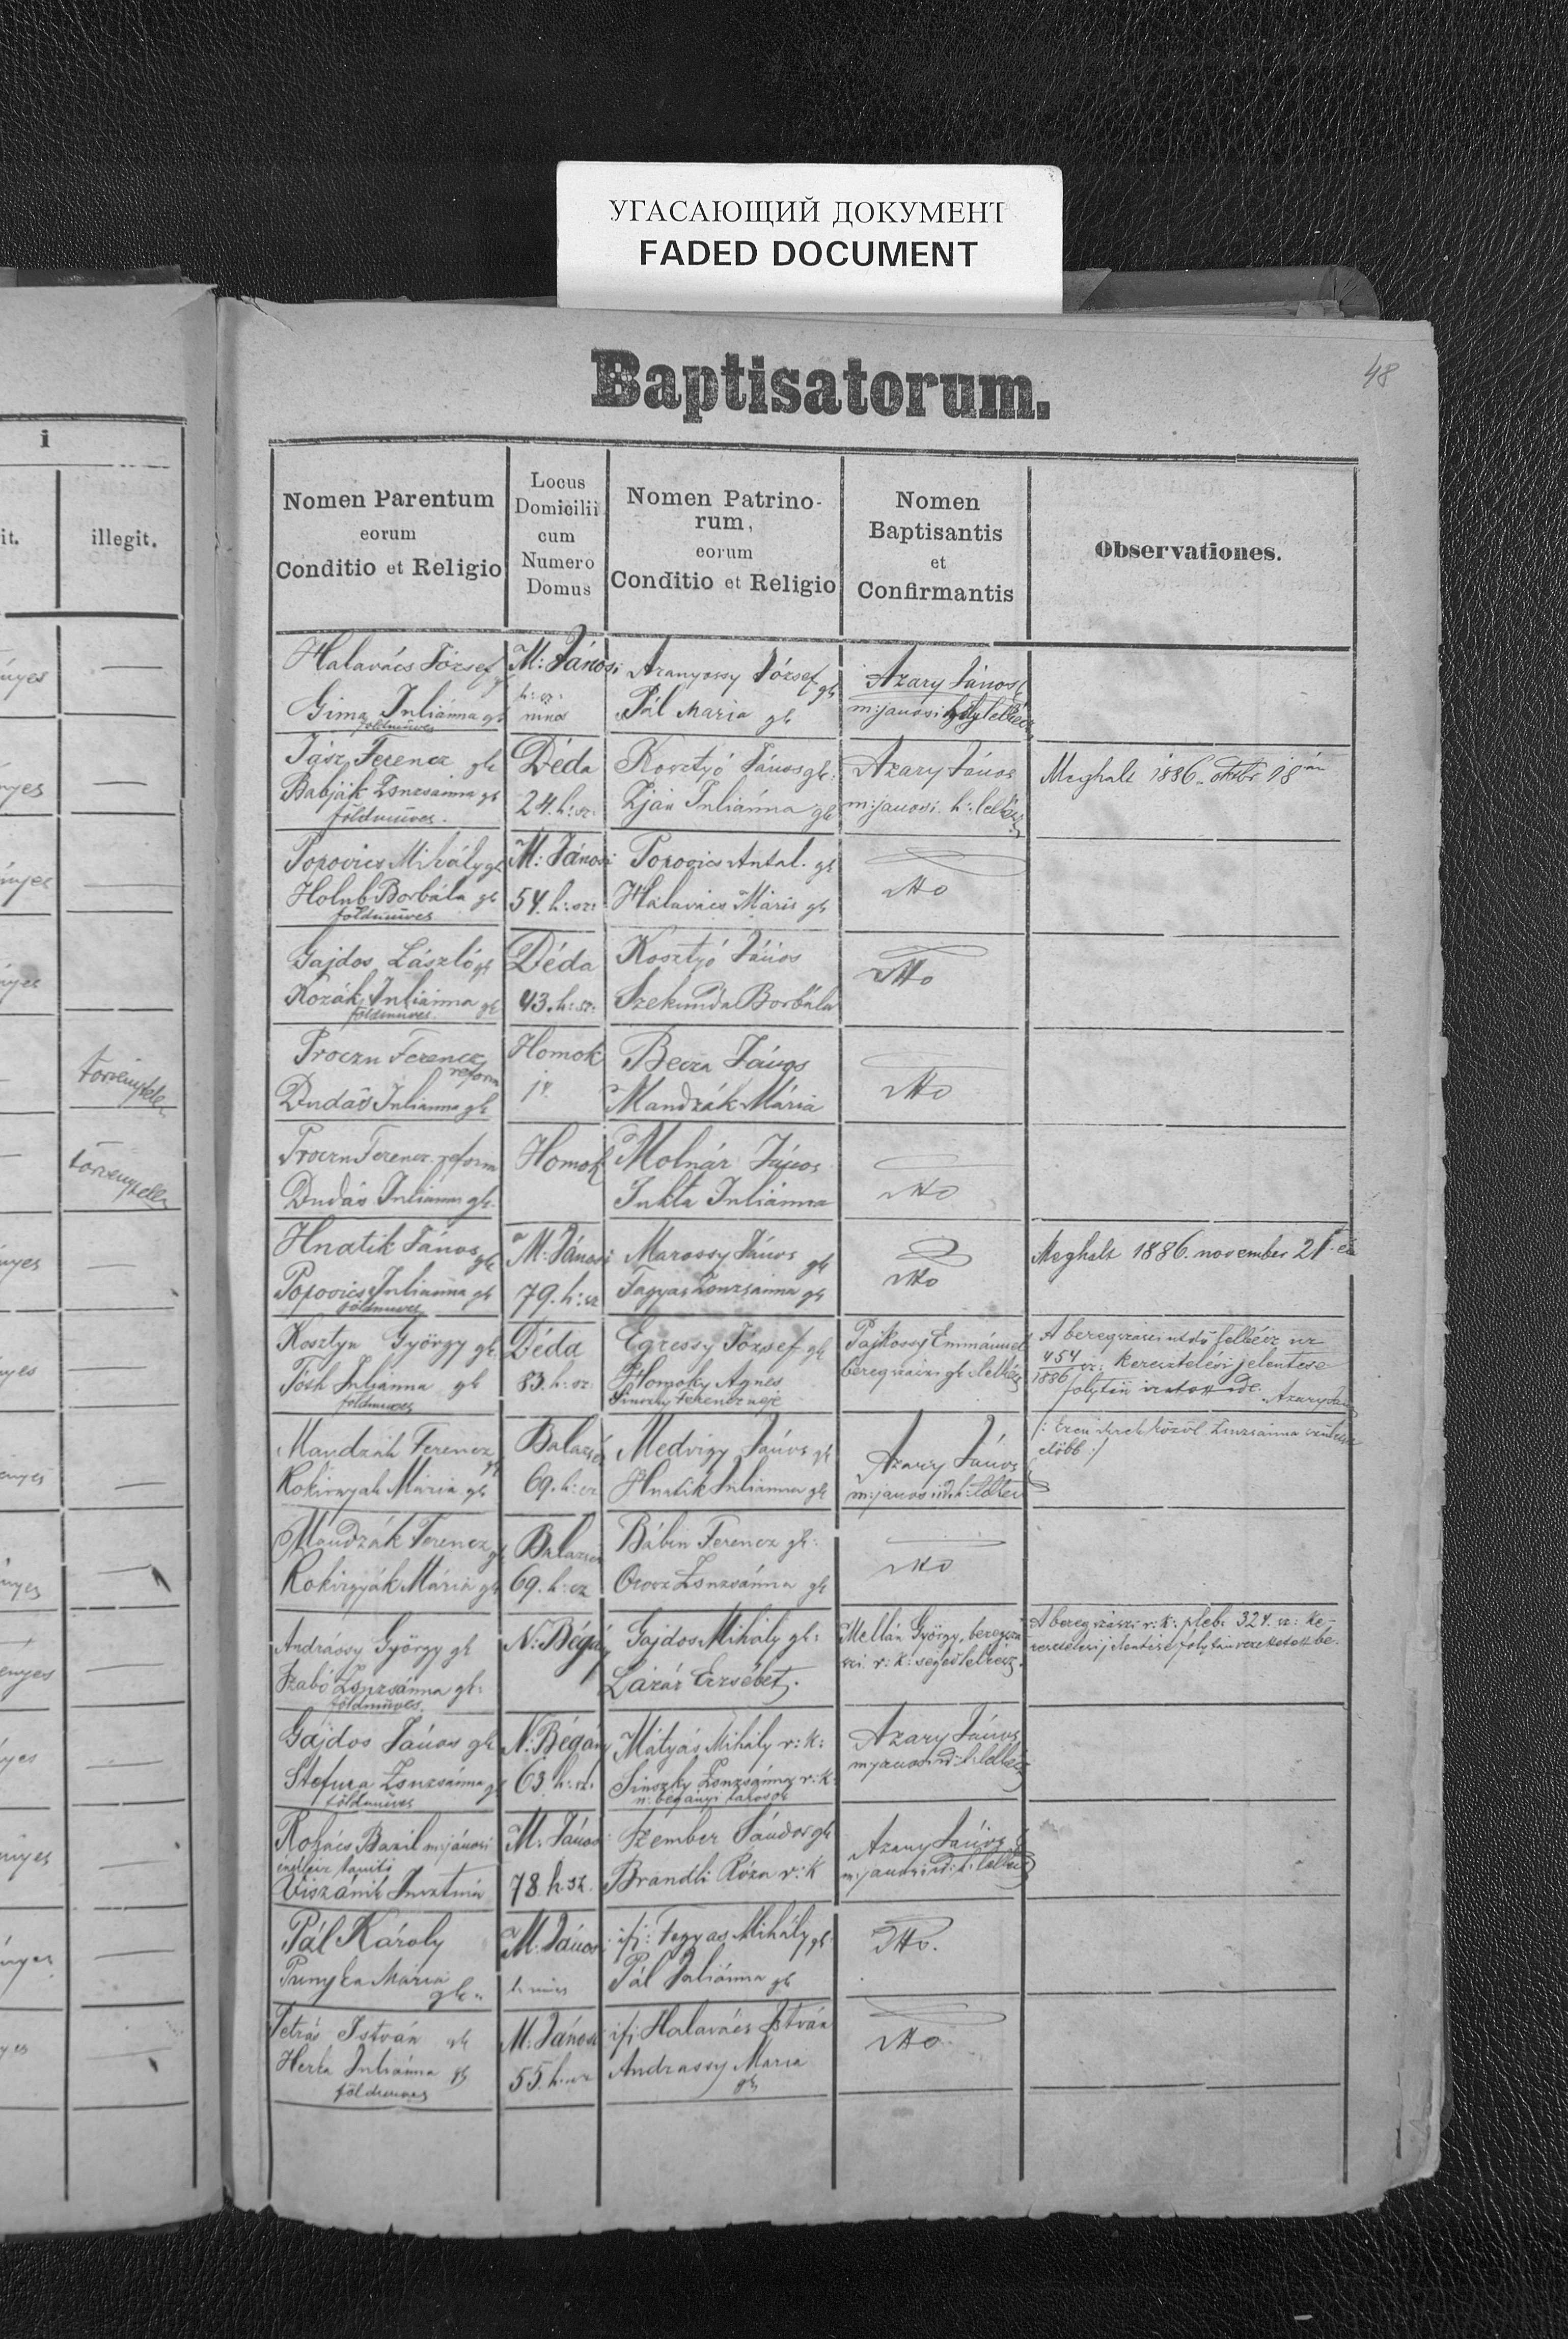 УГАСАЮЩИЙ ДОКУМЕНТ
FADED DOCUMENT
48
Baptisatorum.
i
it.
illegit.
Nomen Parentum
eorum
Conditio et Religio
Locus
Domicilii
cum
Numero
Domus
Nomen Patrino-
rum,
eorum
Conditio et Religio
Nomen
Baptisantis
et
Confirmantis
Observationes.
Halavács József
Gima Juliánna gk
földmüves
M: Jánosi
h: sz:
nincs
Aranyossy József gk
Pál Maria gk
Azary János
m:janosi lelkész
Jász Ferencz gk
Babják Zsuzsánna gk
földmüves.
Déda
24. h: sz:
Kosztyó János gk:
Zján Juliánna gk
Azary János
m:janosi. h: lelkész
Meghalt 1886. oktbr 18án
Popovics Mihály gk
Holub Borbála gk
földmüves
M: Jánosi
54. h: sz:
Popovics Antal. gk
Halavács Máris gk
dtto
Gajdos László gk
Kozák Juliánna gk
földmüves.
Déda
43. h: sz:
Kosztyó János
Szekunda Borbála
dtto
törvénytelen
Proczu Ferencz
reform
Dudás Julianna gk
Homok
Becza János
Mandzák Mária
dtto
törvénytelen
Proczu Ferencz reform
Dudás Juliánna gk.
Homok
Molnár János
Jukta Juliánna
dtto
Hnatik János gk
Popovics Julianna gk
földmuves
M: Jánosi
79. h: sz
Marossy János gk
Fagyas Zsuzsánna gk
dtto
Meghalt 1886. november 21-én
Kosztyu György gk
Tóth Julianna gk
földmuves
Déda
83. h: sz:
Egressy József gk
Homoky Agnes
Sinszky Ferencz neje
Pajkossy Emmánuel
beregszászi gk: lelkész
454
1886 sz: keresztelési jelentése
folytán
Mandzák Ferencz gk
Kokirnyak Mária gk
69. h: sz
Medvigy János gk
Hnatik Julianna gk
Azary János
m:janosi
Zsuzsánna
előbb :/
Mandzák Ferencz gk
Kokirnyák Mária gk
69. h: sz
Bábin Ferencz gk:
Orosz Zsuzsánna gk
dtto
Andrássy György gk
Szabó Zsuzsánna gk:
földmüves.
N: Bégány
Gajdos Mihály gk:
Lázár Erzsébet.
Mellán György, beregszá
szi r: k: segédlelkész.
A beregszászi r: k: pleb: 324. sz: ke-
resztelési jelentése folytán vezettetett be.
Gajdos János gk
Stefura Zsuzsánna gk
földmüves
N: Bégány
63. h: sz.
Mátyás Mihály r: k:
Sinszky Zsuzsánna r: k
n: bégányi lakosok
Azary János
Kovács Bazil m:jánosi
tanító
M: Jánosi
78. h. sz.
Szember Sándor gk
Brandli Róza r: k
Azary János
Pál Károly
Mária
gk
M. Jánosi
ifj: Fagyas Mihály gk
Pál Juliánna gk
dtto.
Petrás István gk
Herka Juliánna gk
földmuves
M: Jánosi
55. h: sz
ifj Halavács István
Andrassy Maria
gk
dtto